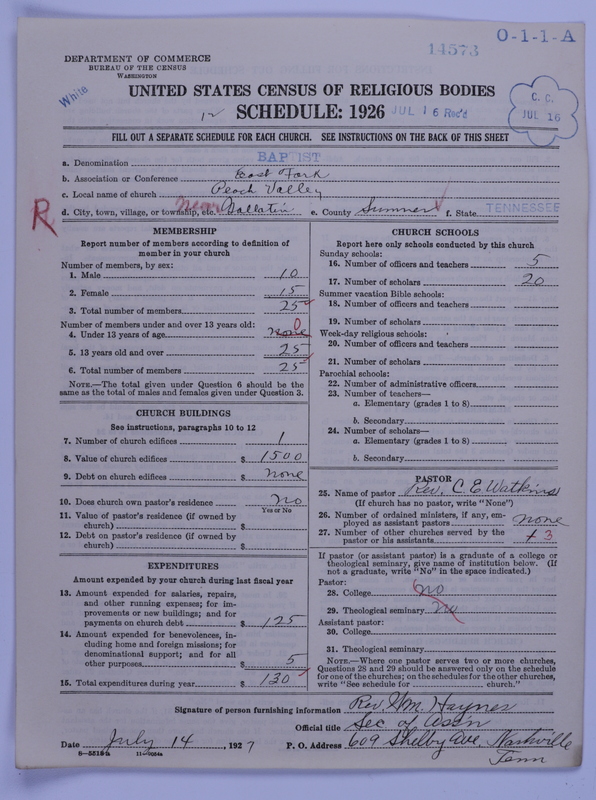 O-1-1-A
14573
DEPARTMENT OF COMMERCE
BUREAU OF THE CENSUS
WASHINGTON
White
UNITED STATES CENSUS OF RELIGIOUS BODIES
12
SCHEDULE: 1926
JUL 16 Rec'd
C. C.
JUL 16
FILL OUT A SEPARATE SCHEDULE FOR EACH CHURCH. SEE INSTRUCTIONS ON THE BACK OF THIS SHEET
a. Denomination BAPTIST
b. Association or Conference East Fork
c. Local name of church Peach Valley
R
d. City, town, village, or township, etc. near Gallatin e. County Sumner f. State TENNESSEE
MEMBERSHIP
Report number of members according to definition of
member in your church
Number of members, by sex:
1. Male 10
2. Female 15
3. Total number of members 25
Number of members under and over 13 years old:
4. Under 13 years of age None 0
5. 13 years old and over 25
6. Total number of members 25
NOTE.—The total given under Question 6 should be
same as the total of males and females given under Question 3.
CHURCH BUILDINGS
See instructions, paragraphs 10 to 12
7. Number of church edifices 1
8. Value of church edifices $ 1500
9. Debt on church edifices $ none
10. Does church own pastor's residence no
Yes or No
11. Value of pastor's residence (if owned by
church) $
12. Debt on pastor's residence (if owned by
church) $
EXPENDITURES
Amount expended by your church during last fiscal year
13. Amount expended for salaries, repairs,
and other running expenses; for im-
provements or new buildings; and for
payments on church debt $ 125
14. Amount expended for benevolences, in-
cluding home and foreign missions; for
denominational support; and for all
other purposes $ 5
15. Total expenditures during year $ 130
CHURCH SCHOOLS
Report here only schools conducted by this church
Sunday schools:
16. Number of officers and teachers 5
17. Number of scholars 20
Summer vacation Bible schools:
18. Number of officers and teachers
19. Number of scholars
Week-day religious schools:
20. Number of officers and teachers
21. Number of scholars
Parochial schools:
22. Number of administrative officers
23. Number of teachers—
a. Elementary (grades 1 to 8)
b. Secondary
24. Number of scholars—
a. Elementary (grades 1 to 8)
b. Secondary
PASTOR
25. Name of pastor Rev. C E Watkins
(If church has no pastor, write "None")
26. Number of ordained ministers, if any, em-
ployed as assistant pastors none
27. Number of other churches served by the
pastor or his assistants 3
If pastor (or assistant pastor) is a graduate of a college or
theological seminary, give name of institution below. (If
not a graduate, write "No" in the space indicated.)
Pastor:
28. College no
29. Theological seminary no
Assistant pastor:
30. College
31. Theological seminary
NOTE.—Where one pastor serves two or more churches,
Questions 28 and 29 should be answered only on the schedule
for one of the churches; on the schedules for the other churches,
write "See schedule for church."
Signature of person furnishing information Rev. Wm. Haynes
Official title Sec. of Ass'n
Date July 14, 1927 P. O. Address 609 Shelby Ave, Nashville
Tenn